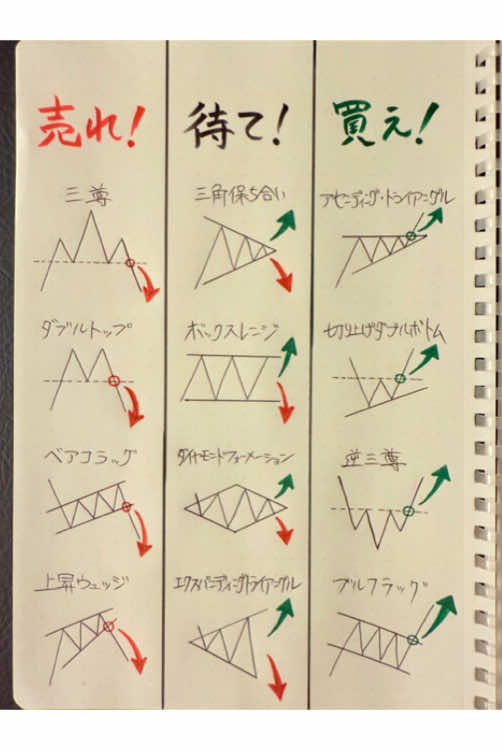 売れ!
三尊
ダブルトップ
ベアフラッグ
上昇ウェッジ
待て!
三角保ち合い
ボックスレンジ
ダイヤモンドフォーメーション
エクスパンディングトライアングル
買え!
アセンディング・トライアングル
切り上げダブルボトム
逆三尊
ブルフラッグ